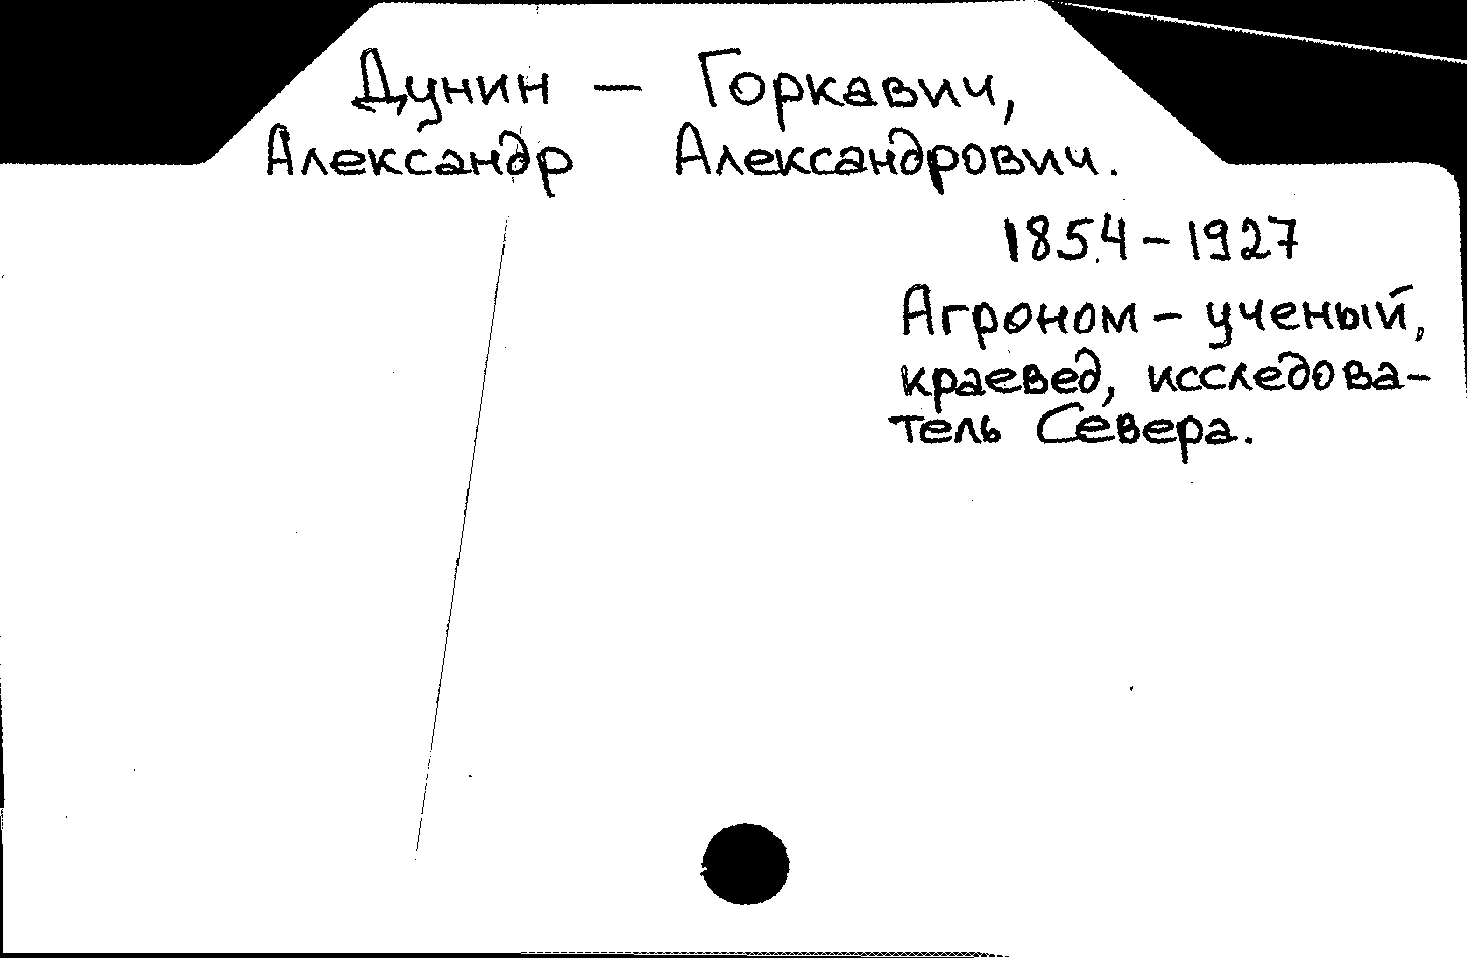 Дунин – Горкавич,
Александр Александрович.
1854 – 1927
Агроном – ученый,
краевед, исследова-
тель Севера.